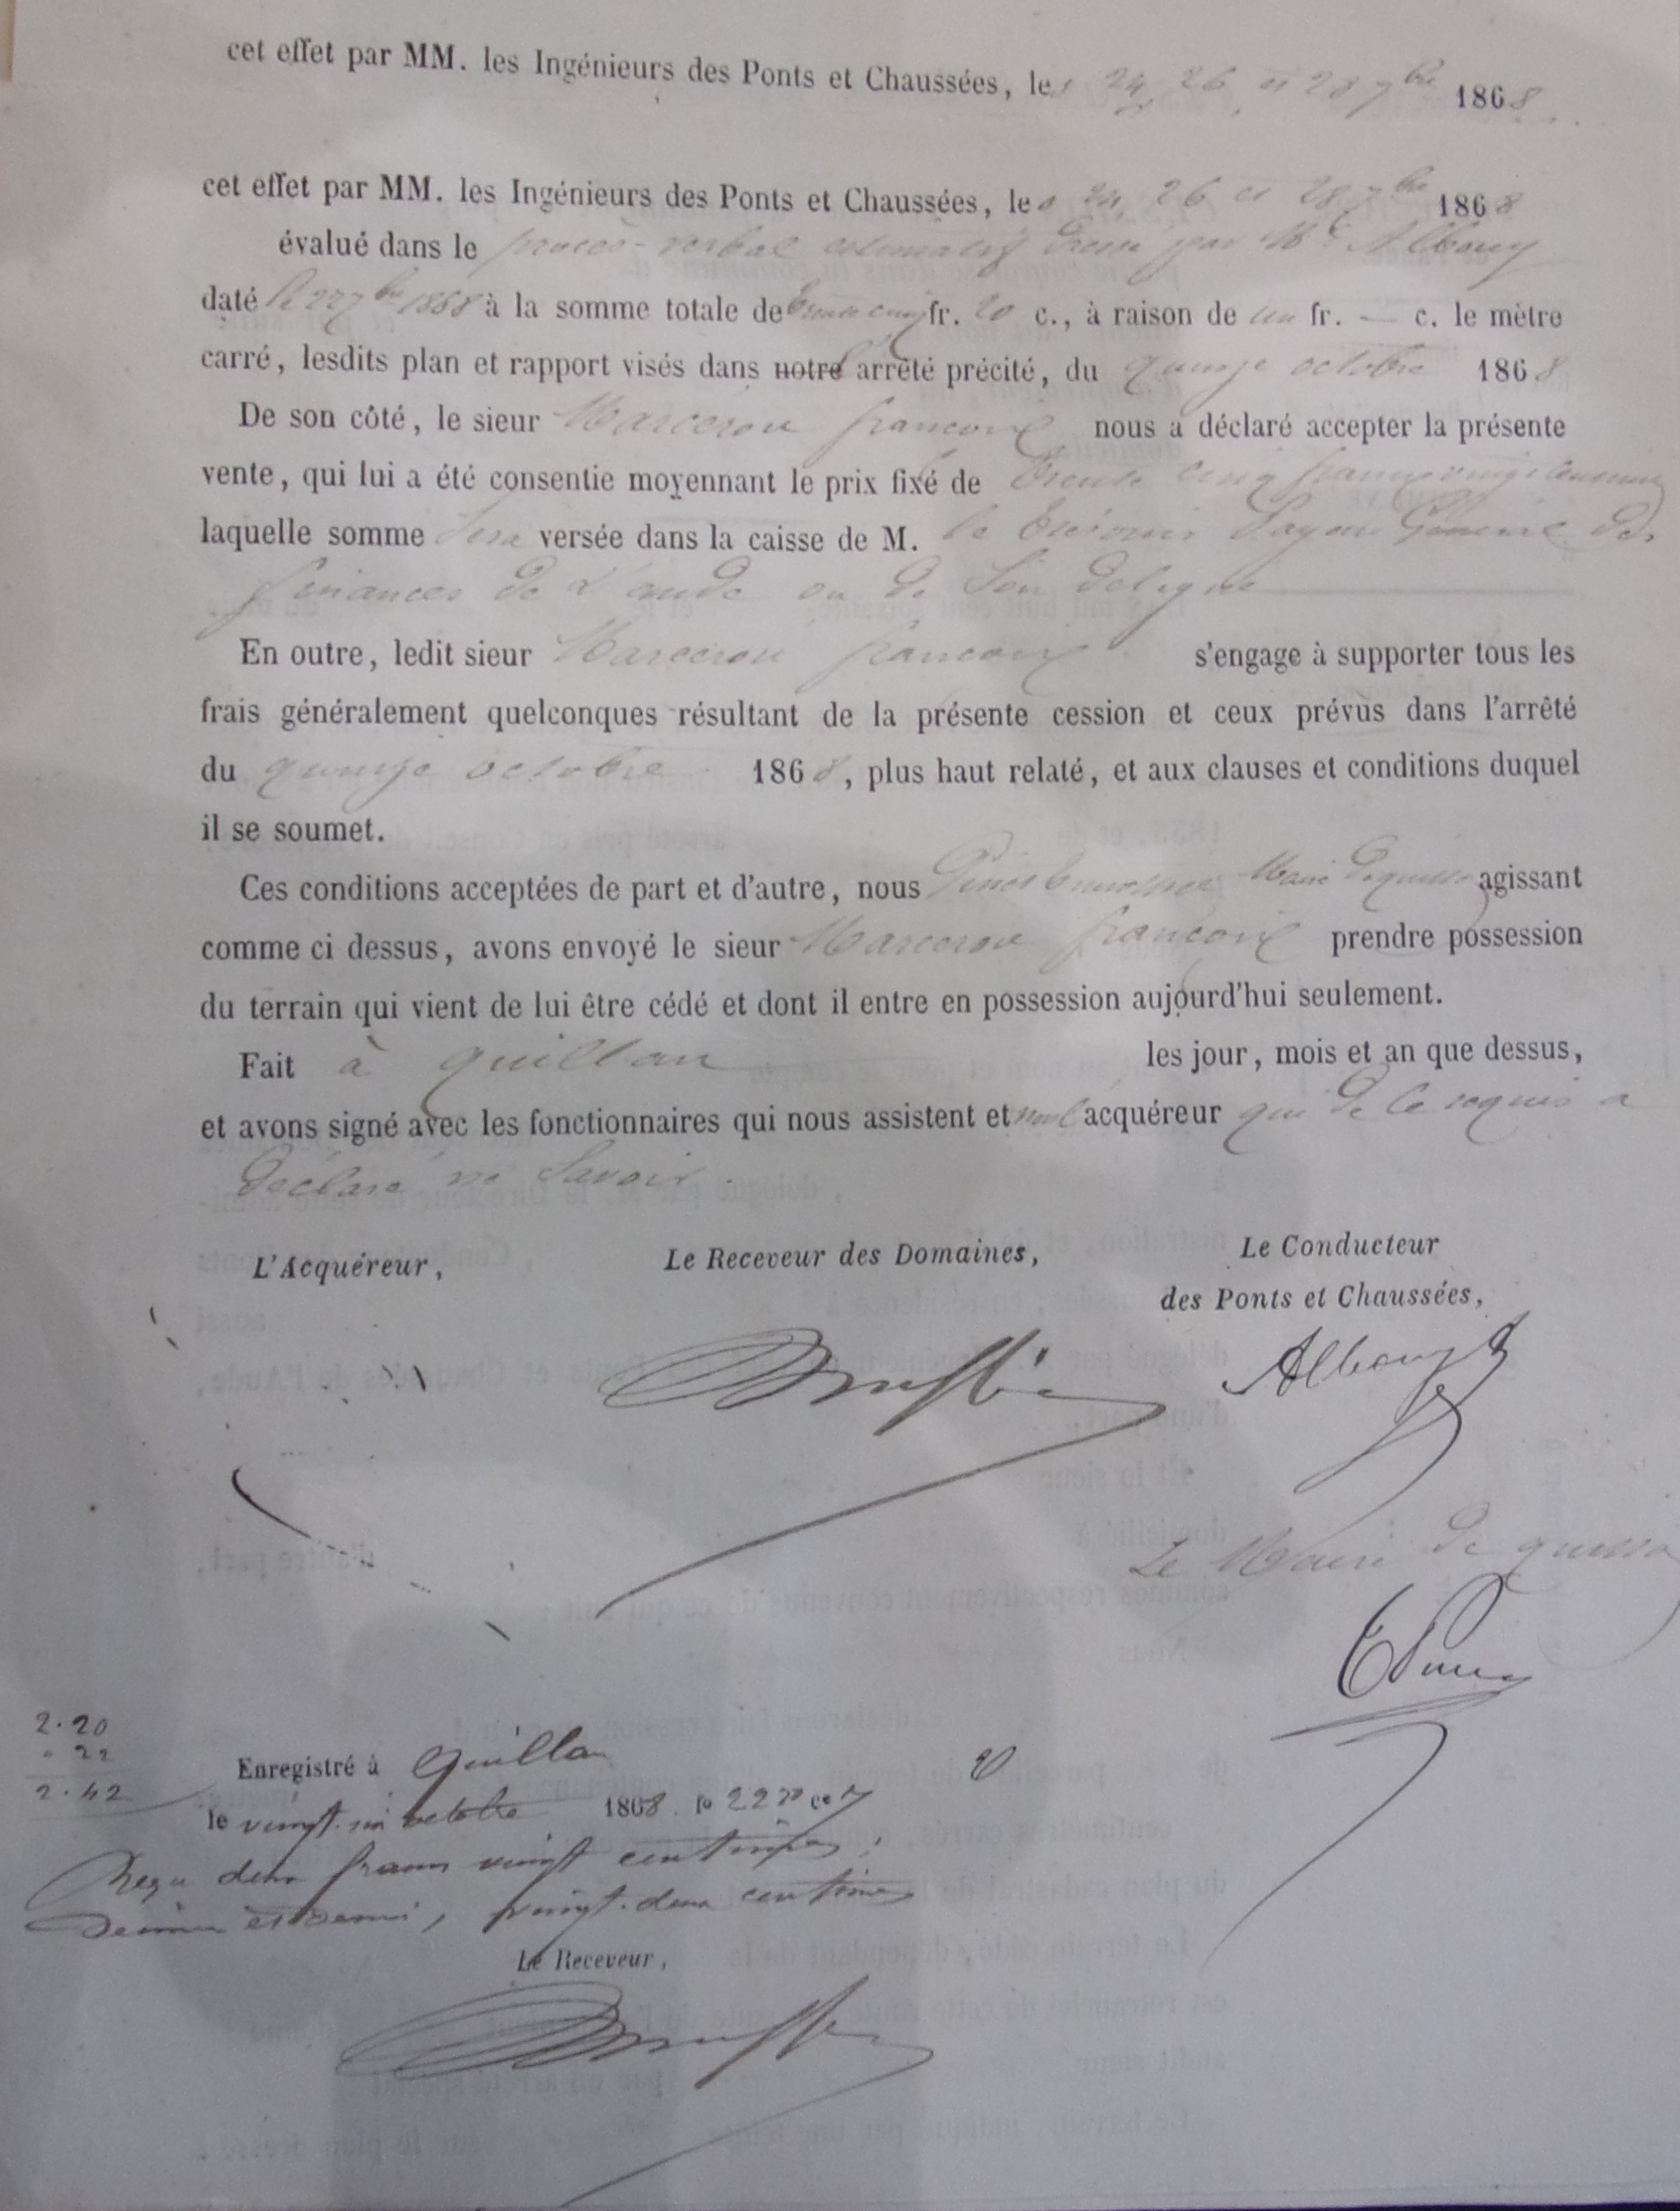 cet effet par MM. les Ingénieurs des Ponts et Chaussées, les 24, 26 et 28 7bre 1868
cet effet par MM. les Ingénieurs des Ponts et Chaussées, les 24, 26 et 28 7bre 1868
évalué dans le procès-verbal estimatif dressé par Mr Albouy
daté le 22 7bre 1868 à la somme totale de trente cinq fr. 20 c., à raison de un fr. — c. le mètre
carré, lesdits plan et rapport visés dans notre l'arrêté précité, du quinze octobre 1868
De son côté, le sieur Marcerou francois nous a déclaré accepter la présente
vente, qui lui a été consentie moyennant le prix fixé de trente cinq francs vingt centimes
laquelle somme sera versée dans la caisse de M. le trésorier Payeur Général des
finances de l'aude ou de son délégué
En outre, ledit sieur Marcerou francois s'engage à supporter tous les
frais généralement quelconques résultant de la présente cession et ceux prévus dans l'arrêté
du quinze octobre 1868, plus haut relaté, et aux clauses et conditions duquel
il se soumet.
Ces conditions acceptées de part et d'autre, nous Maire de quillan agissant
comme ci dessus, avons envoyé le sieur Marcerou francois prendre possession
du terrain qui vient de lui être cédé et dont il entre en possession aujourd'hui seulement.
Fait à quillan les jour, mois et an que dessus,
et avons signé avec les fonctionnaires qui nous assistent et non l'acquéreur qui de ce requis a
déclaré ne savoir.
L'Acquéreur,
Le Receveur des Domaines,
Le Conducteur
des Ponts et Chaussées,
Albouy
Le Maire de quillan
2.20
" 22
2.42
Enregistré à Quillan
le vingt-six octobre 1868. fo 22 ro ce 7
Reçu deux francs vingt centimes;
Décime et demi, vingt-deux centimes
Le Receveur,